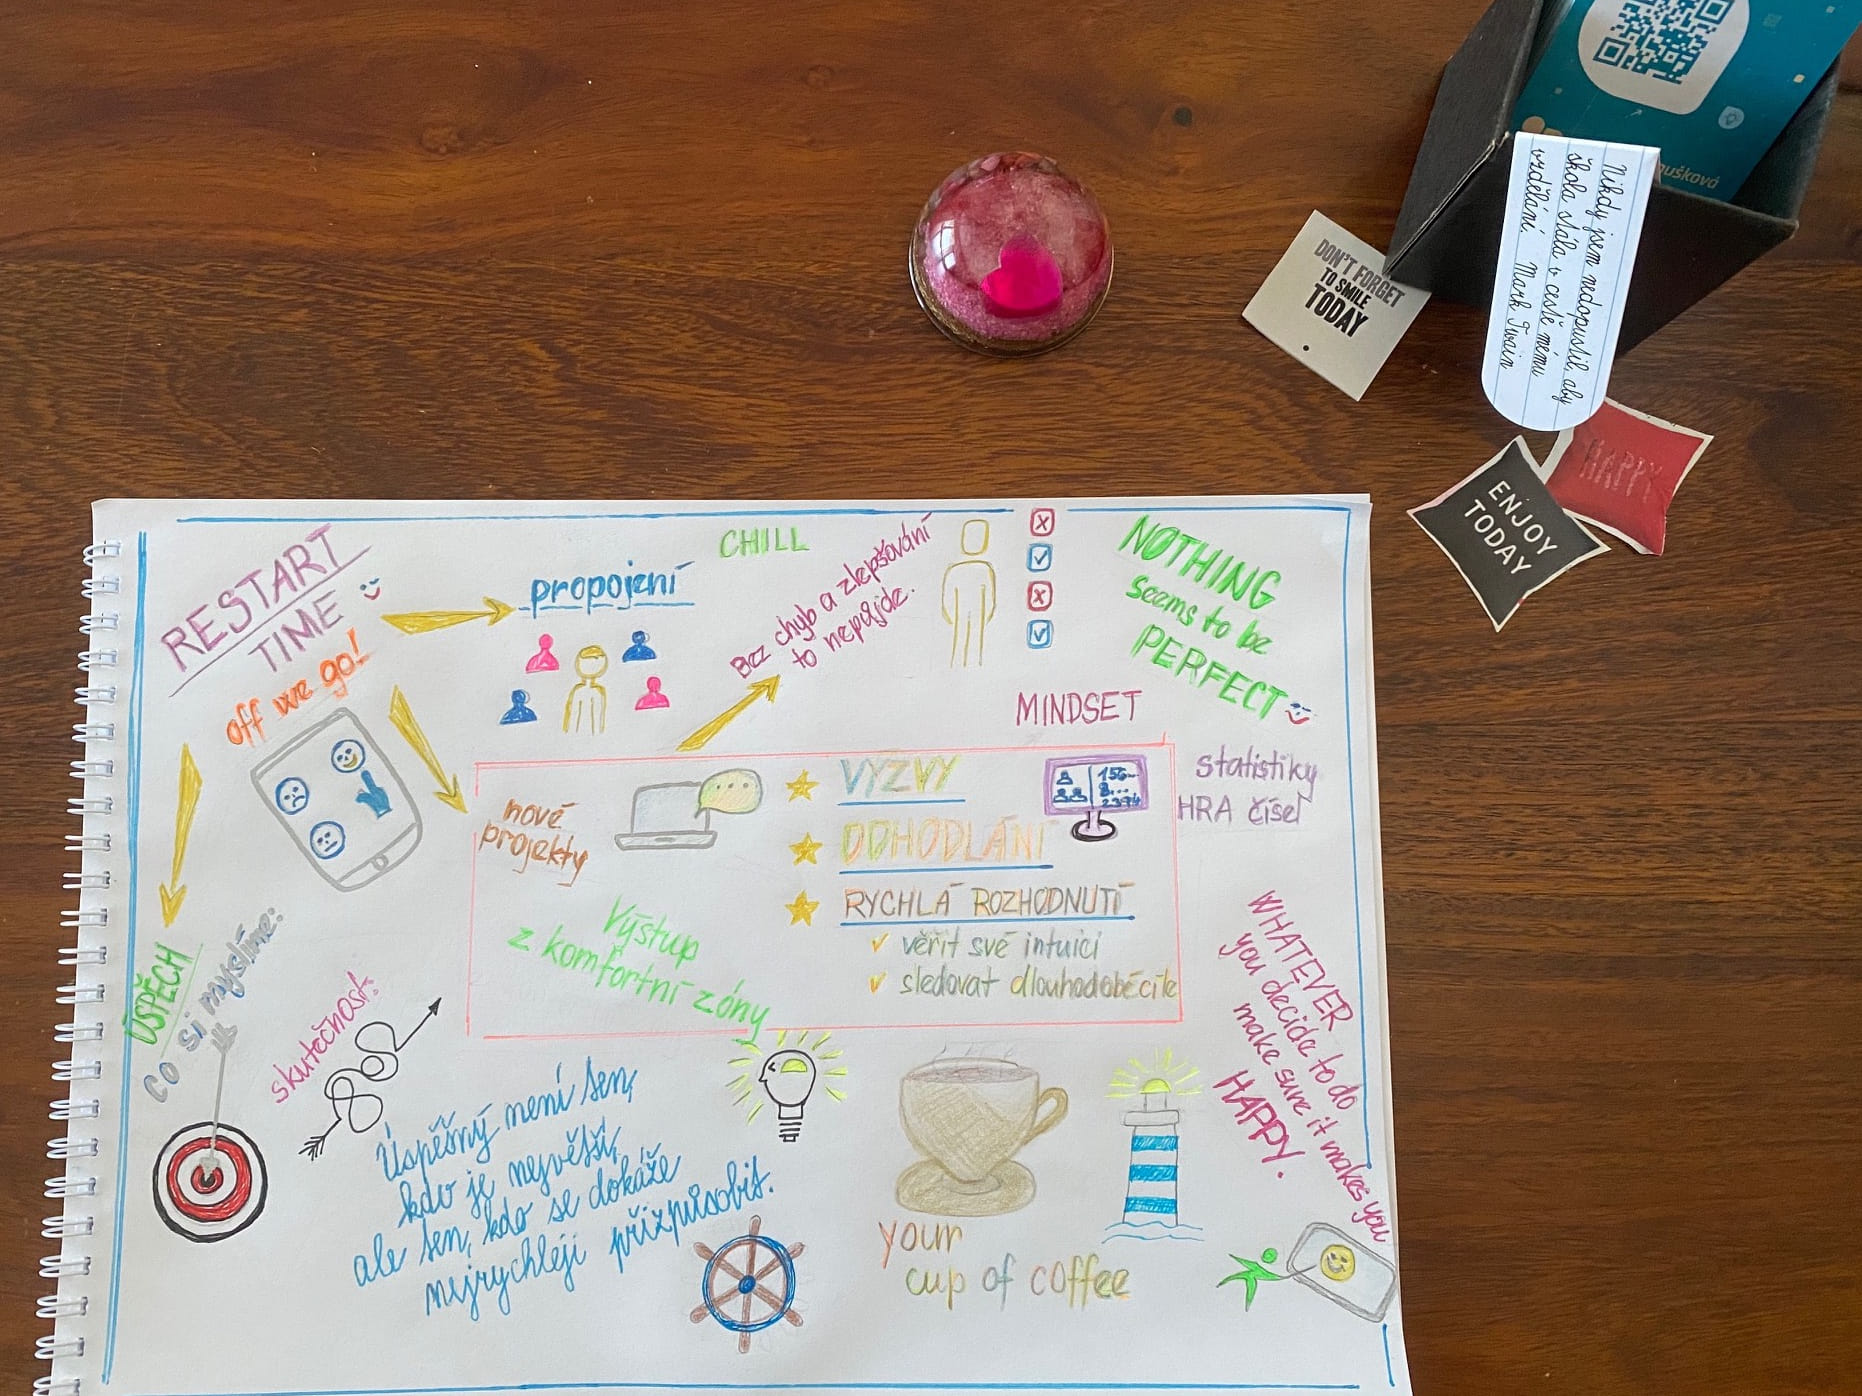 Nikdy jsem nedopustil, aby
škola stála v cestě mému
vzdělání. Mark Twain
DON'T FORGET
TO SMILE
TODAY
HAPPY
ENJOY
TODAY
RESTART
TIME
off we go!
propojení
CHILL
Bez chyb a zlepšování
to nepůjde.
NOTHING
seems to be
PERFECT
MINDSET
statistiky
HRA čísel
nové
projekty
VÝZVY
ODHODLÁNÍ
RYCHLÁ ROZHODNUTÍ
věřit své intuici
sledovat dlouhodobé cíle
Výstup
z komfortní zóny
156...
8...
2374
ÚSPĚCH
co si myslíme:
skutečnost:
Úspěšný není ten,
kdo je největší,
ale ten, kdo se dokáže
nejrychleji přizpůsobit.
your
cup of coffee
WHATEVER
you decide to do
make sure it makes you
HAPPY.